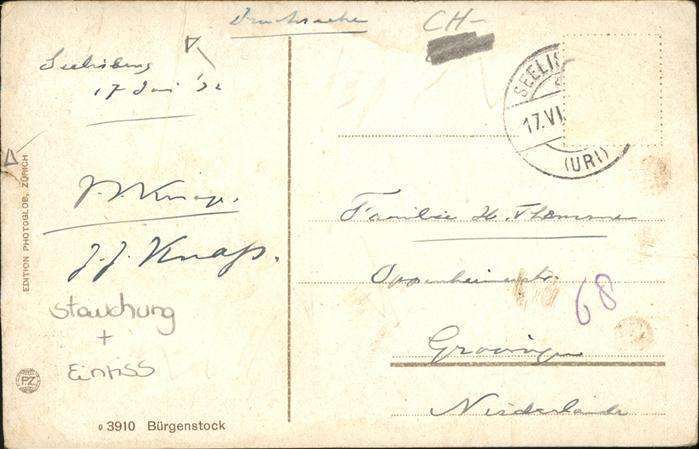 Drucksache
CH-
Seelisberg
17 Juni '32
SEELIS
17.VI
(URI)
EDITION PHOTOGLOB, ZÜRICH
J. J. Knap.
Familie H.
Oppenheimerstr.
68
Stauchung
+
Einriss
Groningen
Niederlande
PZ
3910 Bürgenstock